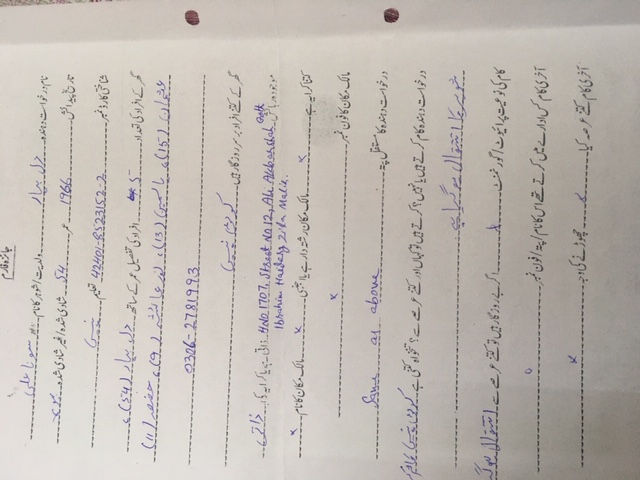 جائزہ فارم
نام درخواست دہندہ دل بہار ولدیت/شوہر کا نام سونا علی
تاریخ پیدائش 1966 عمر 54 شادی شدہ/غیر شادی شدہ بیوہ
شناختی کارڈ نمبر 42401-8523152-2 تعلیم نہیں
گھر کے افراد کی تعداد 5 افراد کی تفصیل عمر کے ساتھ دل بہار (54)،
عثمان (15)، یاسمین (13)، نور عائشہ (9)، حفصہ (11)
0306-2781993
گھر کے کتنے افراد برسر روزگار ہیں کوئی نہیں
موجودہ رہائش H No 1707, Street No 12, Ali Akbar shah Goth ذاتی ہے یا کرایہ کی ذاتی
Ibrahim Hyderi Zila Malir.
کتنا کرایہ ہے x مالک مکان رشتہ دار ہے یا اجنبی x مالک مکان کا نام x
مالک مکان کا فون نمبر x
درخواست دہندہ کا مستقل پتہ Same as above
درخواست دہندہ کام کرتے ہیں یا نہیں؟ کرتے ہیں تو کہاں اور کتنے عرصے سے؟ تنخواہ کتنی ہے کوئی نہیں
شوہر کا انتقال ہوگیا ہے
کام کی نوعیت پرائیوٹ/گورنمنٹ x اگر بے روزگار ہیں تو کتنے عرصے سے انتقال ہوگیا
آخری کام کس ادارے میں کرتے تھے اس کا نام/پتہ/فون نمبر
آخری کام کتنے عرصہ کیا x چھوڑنے کی وجہ x